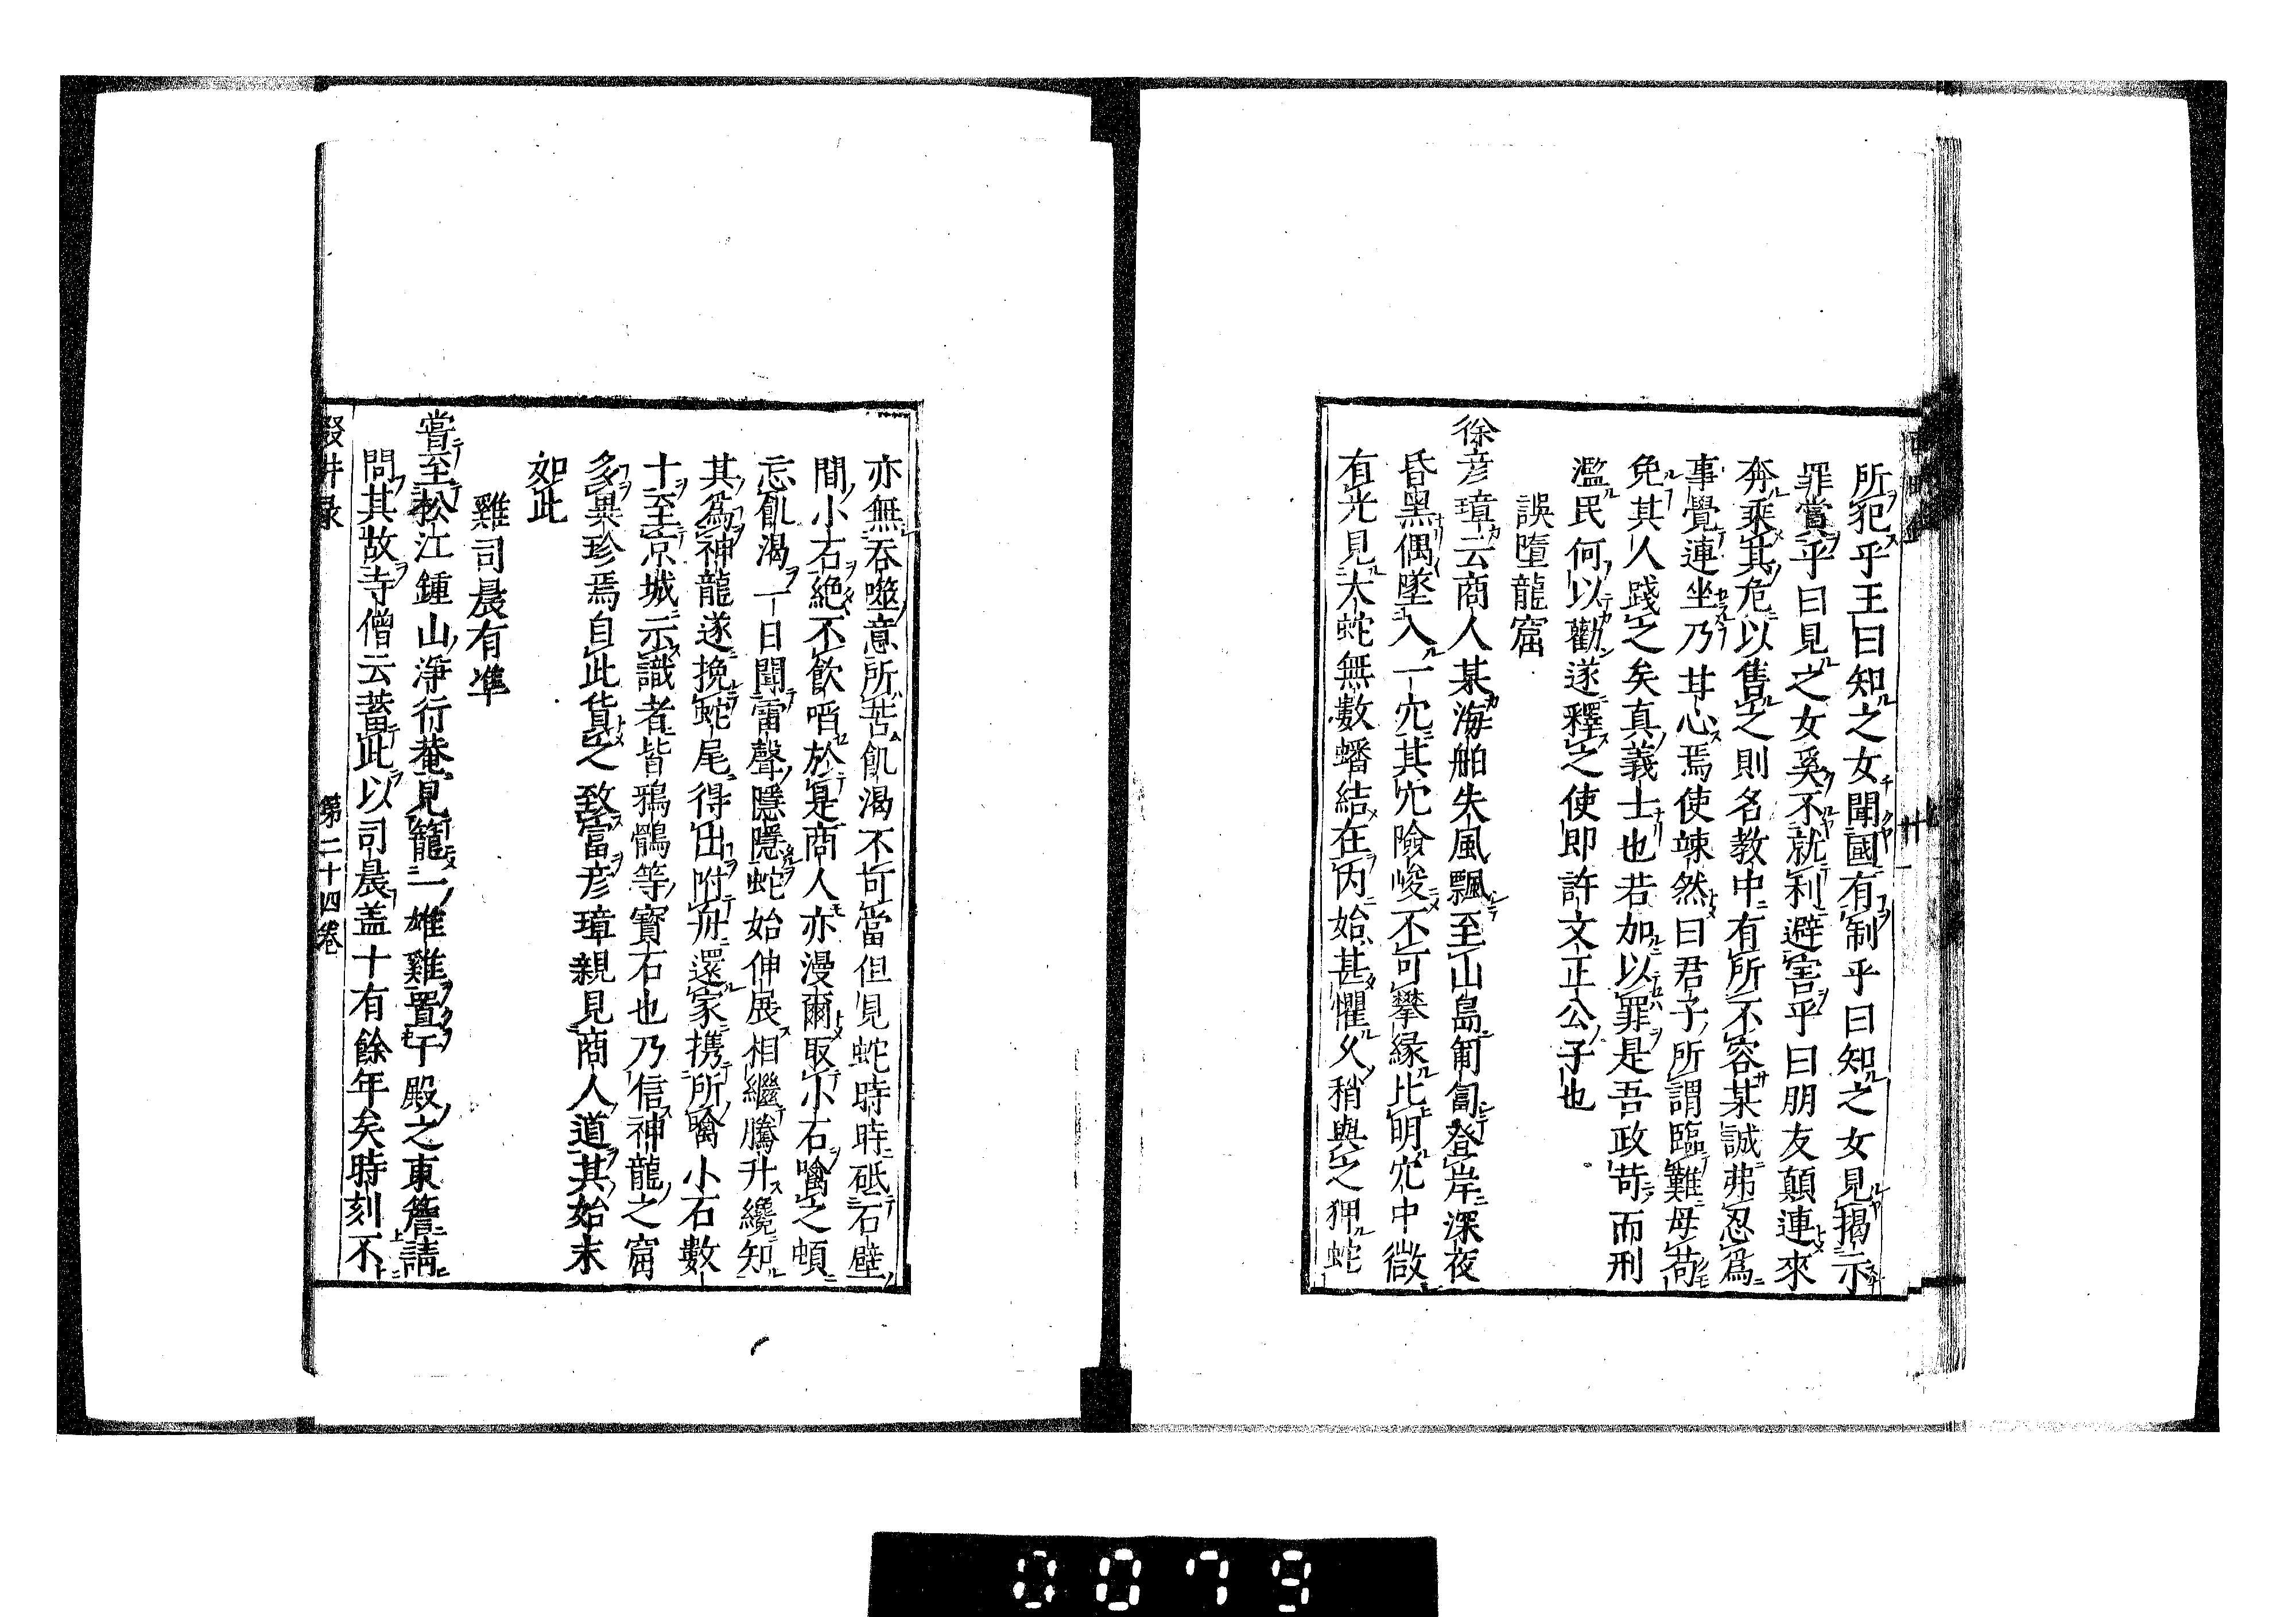 所犯乎王曰知之女聞國有制乎曰知之女見揭示
罪賞乎曰見之女奚不就利避害乎曰朋友顛連來
奔乘其危以售之則名教中有所不容某誠弗忍為
事覺連坐乃甘心焉使竦然曰君子所謂臨難毋苟
免其人踐之矣真義士也若加以罪是吾政苛而刑
濫民何以勸遂釋之使即許文正公子也
誤墮龍窟
徐彦璋云商人某海舶失風飄至山島匍匐登岸深夜
昏黑偶墜入一穴其穴險峻不可攀緣比明穴中微
有光見大蛇無數蟠結在内始甚懼久稍與之狎蛇
亦無吞噬意所苦飢渴不可當但見蛇時時砥石壁
間小石絶不飲啗於是商人亦漫爾取小石噙之頓
忘飢渴一日聞雷聲隱隱蛇始伸展相繼騰升纔知
其為神龍遂挽蛇尾得出附舟還家携所噙小石數
十至京城示識者皆鴉鶻等寳石也乃信神龍之窟
多異珍焉自此貨之致富彦璋親見商人道其始末
如此
雞司晨有準
嘗至松江鍾山淨行菴見籠一雄雞置于殿之東簷請
問其故寺僧云蓄此以司晨盖十有餘年矣時刻不
輟畊录
第二十四卷
0079